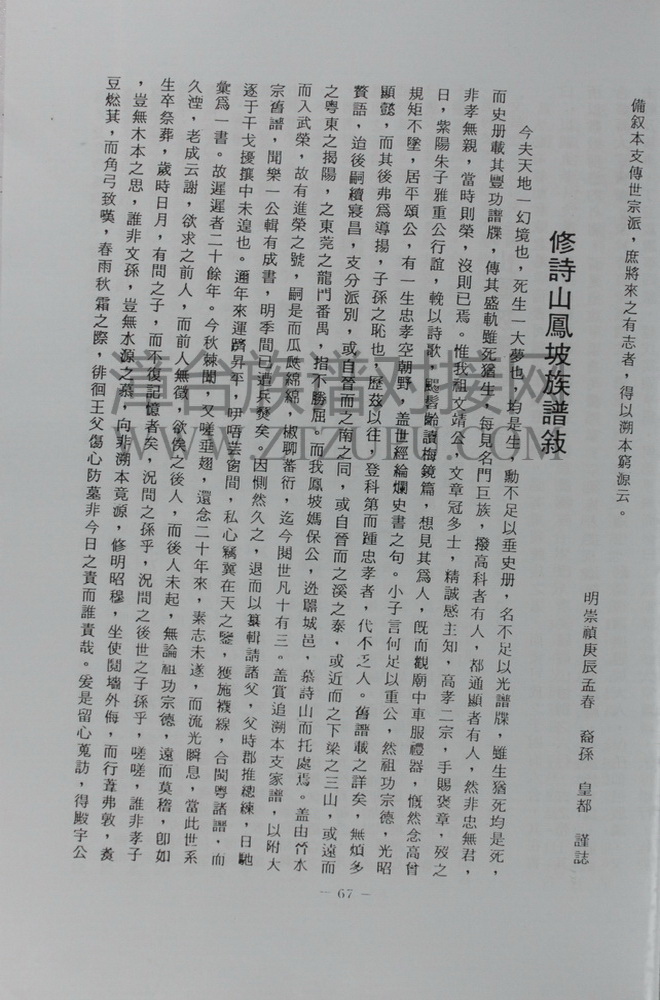 備叙本支傳世宗派，庶將來之有志者，得以溯本窮源云。
明崇禎庚辰孟春　裔孫　皇都　謹誌
修詩山鳳坡族譜敍
今夫天地一幻境也，死生一大夢也，均是生，勳不足以垂史册，名不足以光譜牒，雖生猶死均是死，
而史册載其豐功譜牒，傳其盛軌雖死猶生，每見名門巨族，掇高科者有人，都通顯者有人，然非忠無君，
非孝無親，當時則榮，沒則已焉。惟我祖文靖公，文章冠多士，精誠感主知，高孝二宗，手賜褒章，歿之
日，紫陽朱子雅重公行誼，輓以詩歌，髫齡讀梅鏡篇，想見其爲人，旣而觀廟中車服禮器，慨然念高曾
規矩不墜，居平頌公，有一生忠孝空朝野，蓋世經綸爛史書之句。小子言何足以重公，然祖功宗德，光昭
顯懿，而其後弗爲導揚，子孫之恥也，歷茲以往，登科第而踵忠孝者，代不乏人。舊譜載之詳矣，無煩多
贅語，迨後嗣續寖昌，支分派別，或自晉而之南之同，或自晉而之溪之泰，或近而之下梁之三山，或遠而
之粤東之揭陽，之東莞之龍門番禺，指不勝屈。而我鳳坡媽保公，迯囂城邑，慕詩山而托處焉。蓋由晉水
而入武榮，故有進榮之號，嗣是而瓜瓞綿綿，椒聊蕃衍，迄今閱世凡十有三。蓋賞追溯本支家譜，以附大
宗舊譜，聞樂一公輯有成書，明季間已遭兵燹矣。因惻然久之，退而以纂輯請諸父，父時郡推總練，日馳
逐于干戈擾攘中未遑也。邇年來運躋昇平，咿唔芸窗間，私心竊冀在天之鑒，獲施襪線，合閩粤諸譜，而
彙爲一書。故遲遲者二十餘年。今秋棘闈，又嗟垂翅，還念二十年來，素志未遂，而流光瞬息，當此世系
久湮，老成云謝，欲求之前人，而前人無徵，欲俟之後人，而後人未起，無論祖功宗德，遠而莫稽，卽如
生卒祭葬，歲時日月，有問之子，而不復記憶者矣，況問之孫乎，況問之後世之子孫乎，嗟嗟，誰非孝子
，豈無木本之思，誰非文孫，豈無水源之慕，向非溯本竟源，修明昭穆，坐使鬩墻外侮，而行葦弗敦，煑
豆燃萁，而角弓致嘆，春雨秋霜之際，徘徊王父傷心防墓非今日之責而誰責哉。爰是留心蒐訪，得殿宇公
－67－
漳台族譜对接网
WWW.ZTZUPU.COM